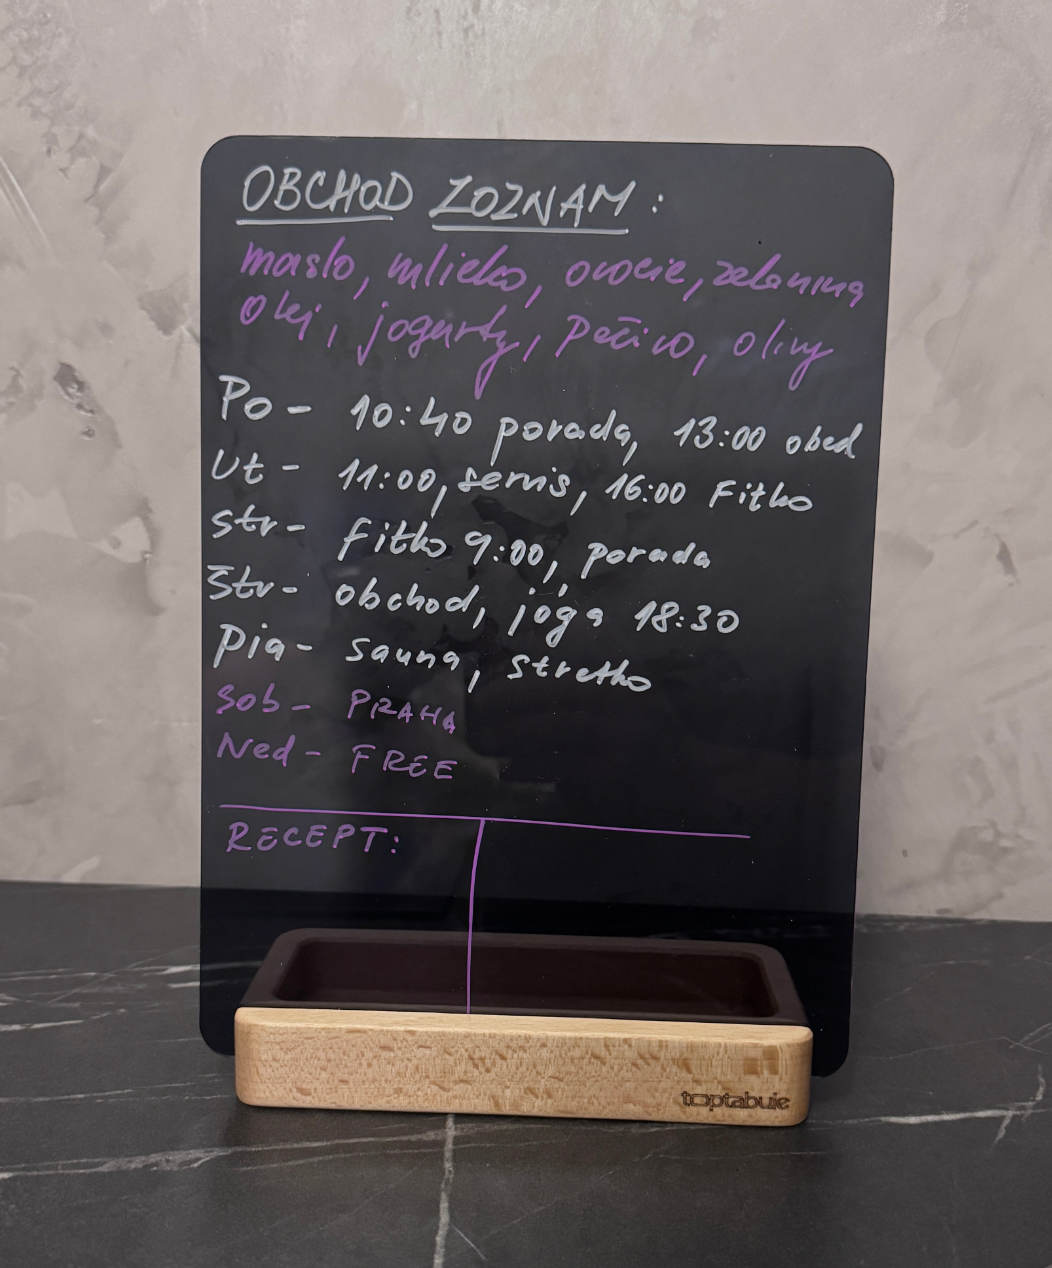 OBCHOD ZOZNAM:
maslo, mlieko, ovocie, zelenina
olej, jogurty, Pečivo, olivy
Po - 10:40 porada, 13:00 obed
Ut - 11:00, servis, 16:00 Fitko
Str - fitko 9:00, porada
Štv - obchod, jóga 18:30
Pia - sauna, stretko
Sob - PRAHA
Ned - FREE
RECEPT:
toptabule